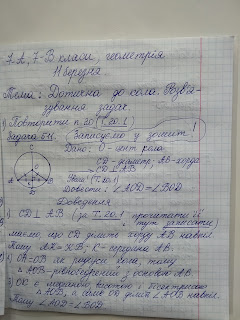 7-А, 7-В класи, геометрія
11 березня
Тема: Дотична до кола. Розв'я-
зування задач.
1) Повторити п. 20 (Т. 20.1)
Задача 541. (Записуємо у зошит!)
Дано: О - цент кола
CD - діаметр, АВ - хорда
CD ⊥ AB
(Т. 20.1)
Довести: ∠AOD = ∠BOD
Доведення
1) CD ⊥ AB (за Т. 20.1 прочитати її
і тут записати)
маємо, що CD ділить хорду AB навпіл.
Тому AK = KB, K - середина AB.
2) OA = OB як радіуси кола, тому
△AOB - рівнобедрений з основою AB.
3) OK є медіаною, висотою і бісектрисою
△AOB, а саме OK ділить ∠AOB навпіл.
Тому ∠AOD = ∠BOD
C
O
A
K
B
D